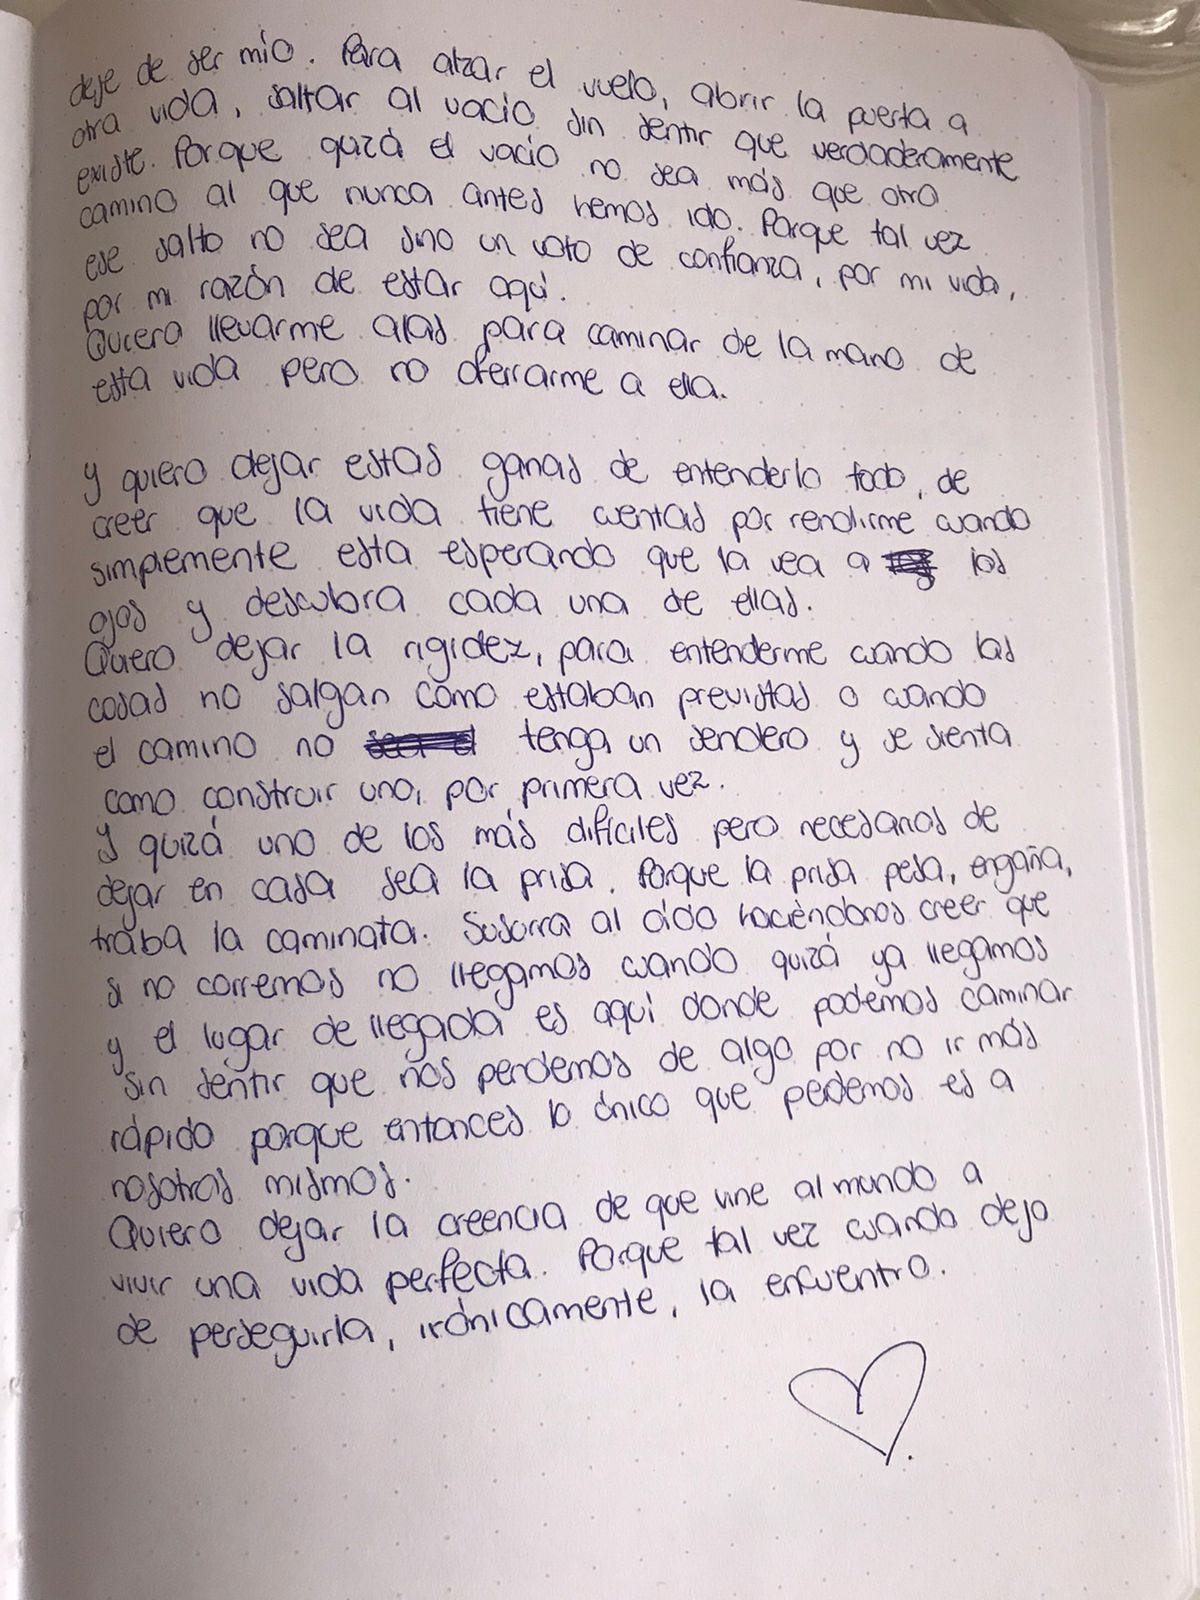 deje de ser mío. Para alzar el vuelo, abrir la puerta a
otra vida, saltar al vacío sin sentir que verdaderamente
existe. Porque quizá el vacío no sea más que otro
camino al que nunca antes hemos ido. Porque tal vez
ese salto no sea sino un voto de confianza, por mi vida,
por mi razón de estar aquí.
Quiero llevarme alas para caminar de la mano de
esta vida pero no aferrarme a ella.
Y quiero dejar estas ganas de entenderlo todo, de
creer que la vida tiene cuentas por rendirme cuando
simplemente esta esperando que la vea a los
ojos y descubra cada una de ellas.
Quiero dejar la rigidez, para entenderme cuando las
cosas no salgan como estaban previstas o cuando
el camino no tenga un sendero y se sienta
como construir uno, por primera vez.
Y quizá uno de los más difíciles pero necesarios de
dejar en casa sea la prisa. Porque la prisa pesa, engaña,
traba la caminata. Susurra al oído haciéndonos creer que
si no corremos no llegamos cuando quizá ya llegamos
y el lugar de llegada es aquí donde podemos caminar
sin sentir que nos perdemos de algo por no ir más
rápido porque entonces lo único que perdemos es a
nosotros mismos.
Quiero dejar la creencia de que vine al mundo a
vivir una vida perfecta. Porque tal vez cuando dejo
de perseguirla, irónicamente, la encuentro.